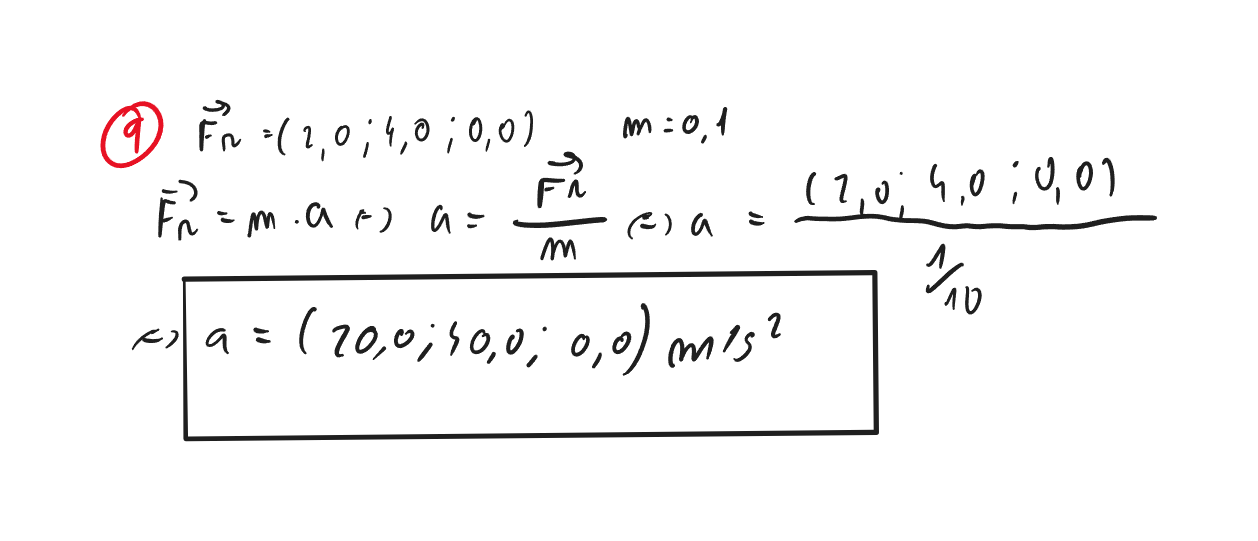 9 F⃗r = (2,0 ; 4,0 ; 0,0) m = 0,1
F⃗r = m . a (=) a = F⃗r / m (=) a = (2,0 ; 4,0 ; 0,0) / 1/10
(=) a = (20,0 ; 40,0 ; 0,0) m/s²